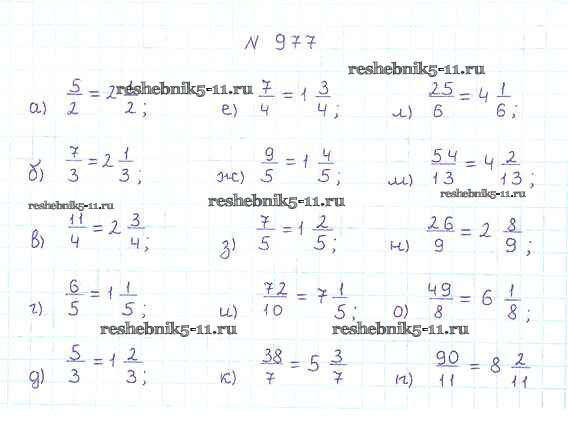 N 977
reshebnik5-11.ru
а) 5/2 = 2 1/2; е) 7/4 = 1 3/4; л) 25/6 = 4 1/6;
reshebnik5-11.ru
б) 7/3 = 2 1/3; ж) 9/5 = 1 4/5; м) 54/13 = 4 2/13;
reshebnik5-11.ru reshebnik5-11.ru reshebnik5-11.ru
в) 11/4 = 2 3/4; з) 7/5 = 1 2/5; н) 26/9 = 2 8/9;
г) 6/5 = 1 1/5; и) 72/10 = 7 1/5; о) 49/8 = 6 1/8;
reshebnik5-11.ru reshebnik5-11.ru
д) 5/3 = 1 2/3; к) 38/7 = 5 3/7 п) 90/11 = 8 2/11